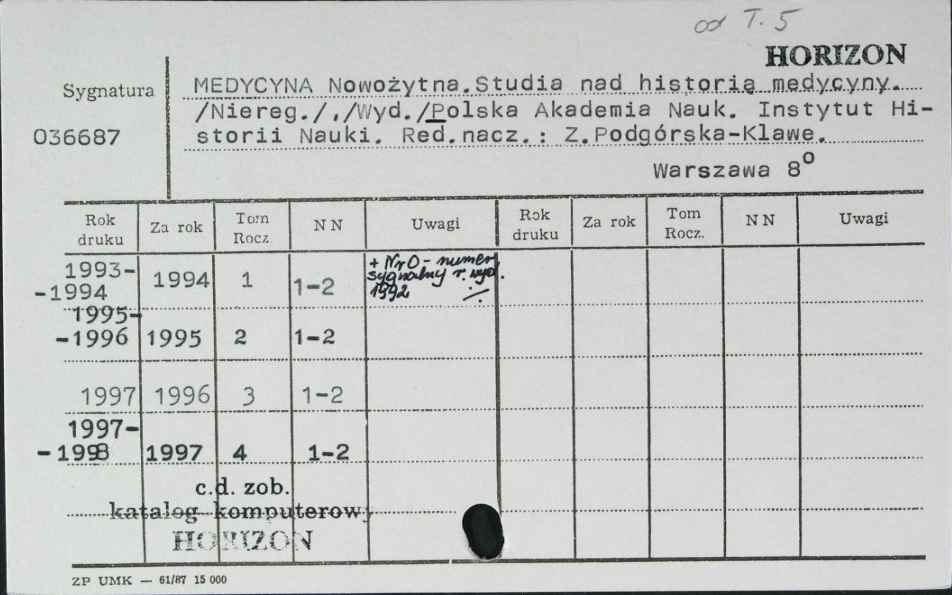 od T. 5
HORIZON
Sygnatura
036687
MEDYCYNA Nowożytna.Studia nad historią medycyny.
/Niereg./,/Wyd./Polska Akademia Nauk. Instytut Hi-
storii Nauki. Red.nacz.: Z.Podgórska-Klawe.
Warszawa 8º
Rok druku Za rok Tom Rocz. NN Uwagi Rok druku Za rok Tom Rocz. NN Uwagi
1993-
-1994 1994 1 1-2 + Nr 0 - numer
sygnalny r. wyd.
1992 ./.
1995-
-1996 1995 2 1-2
1997 1996 3 1-2
1997-
-1998 1997 4 1-2
c.d. zob.
katalog komputerowy
HORIZON
ZP UMK — 61/87 15 000